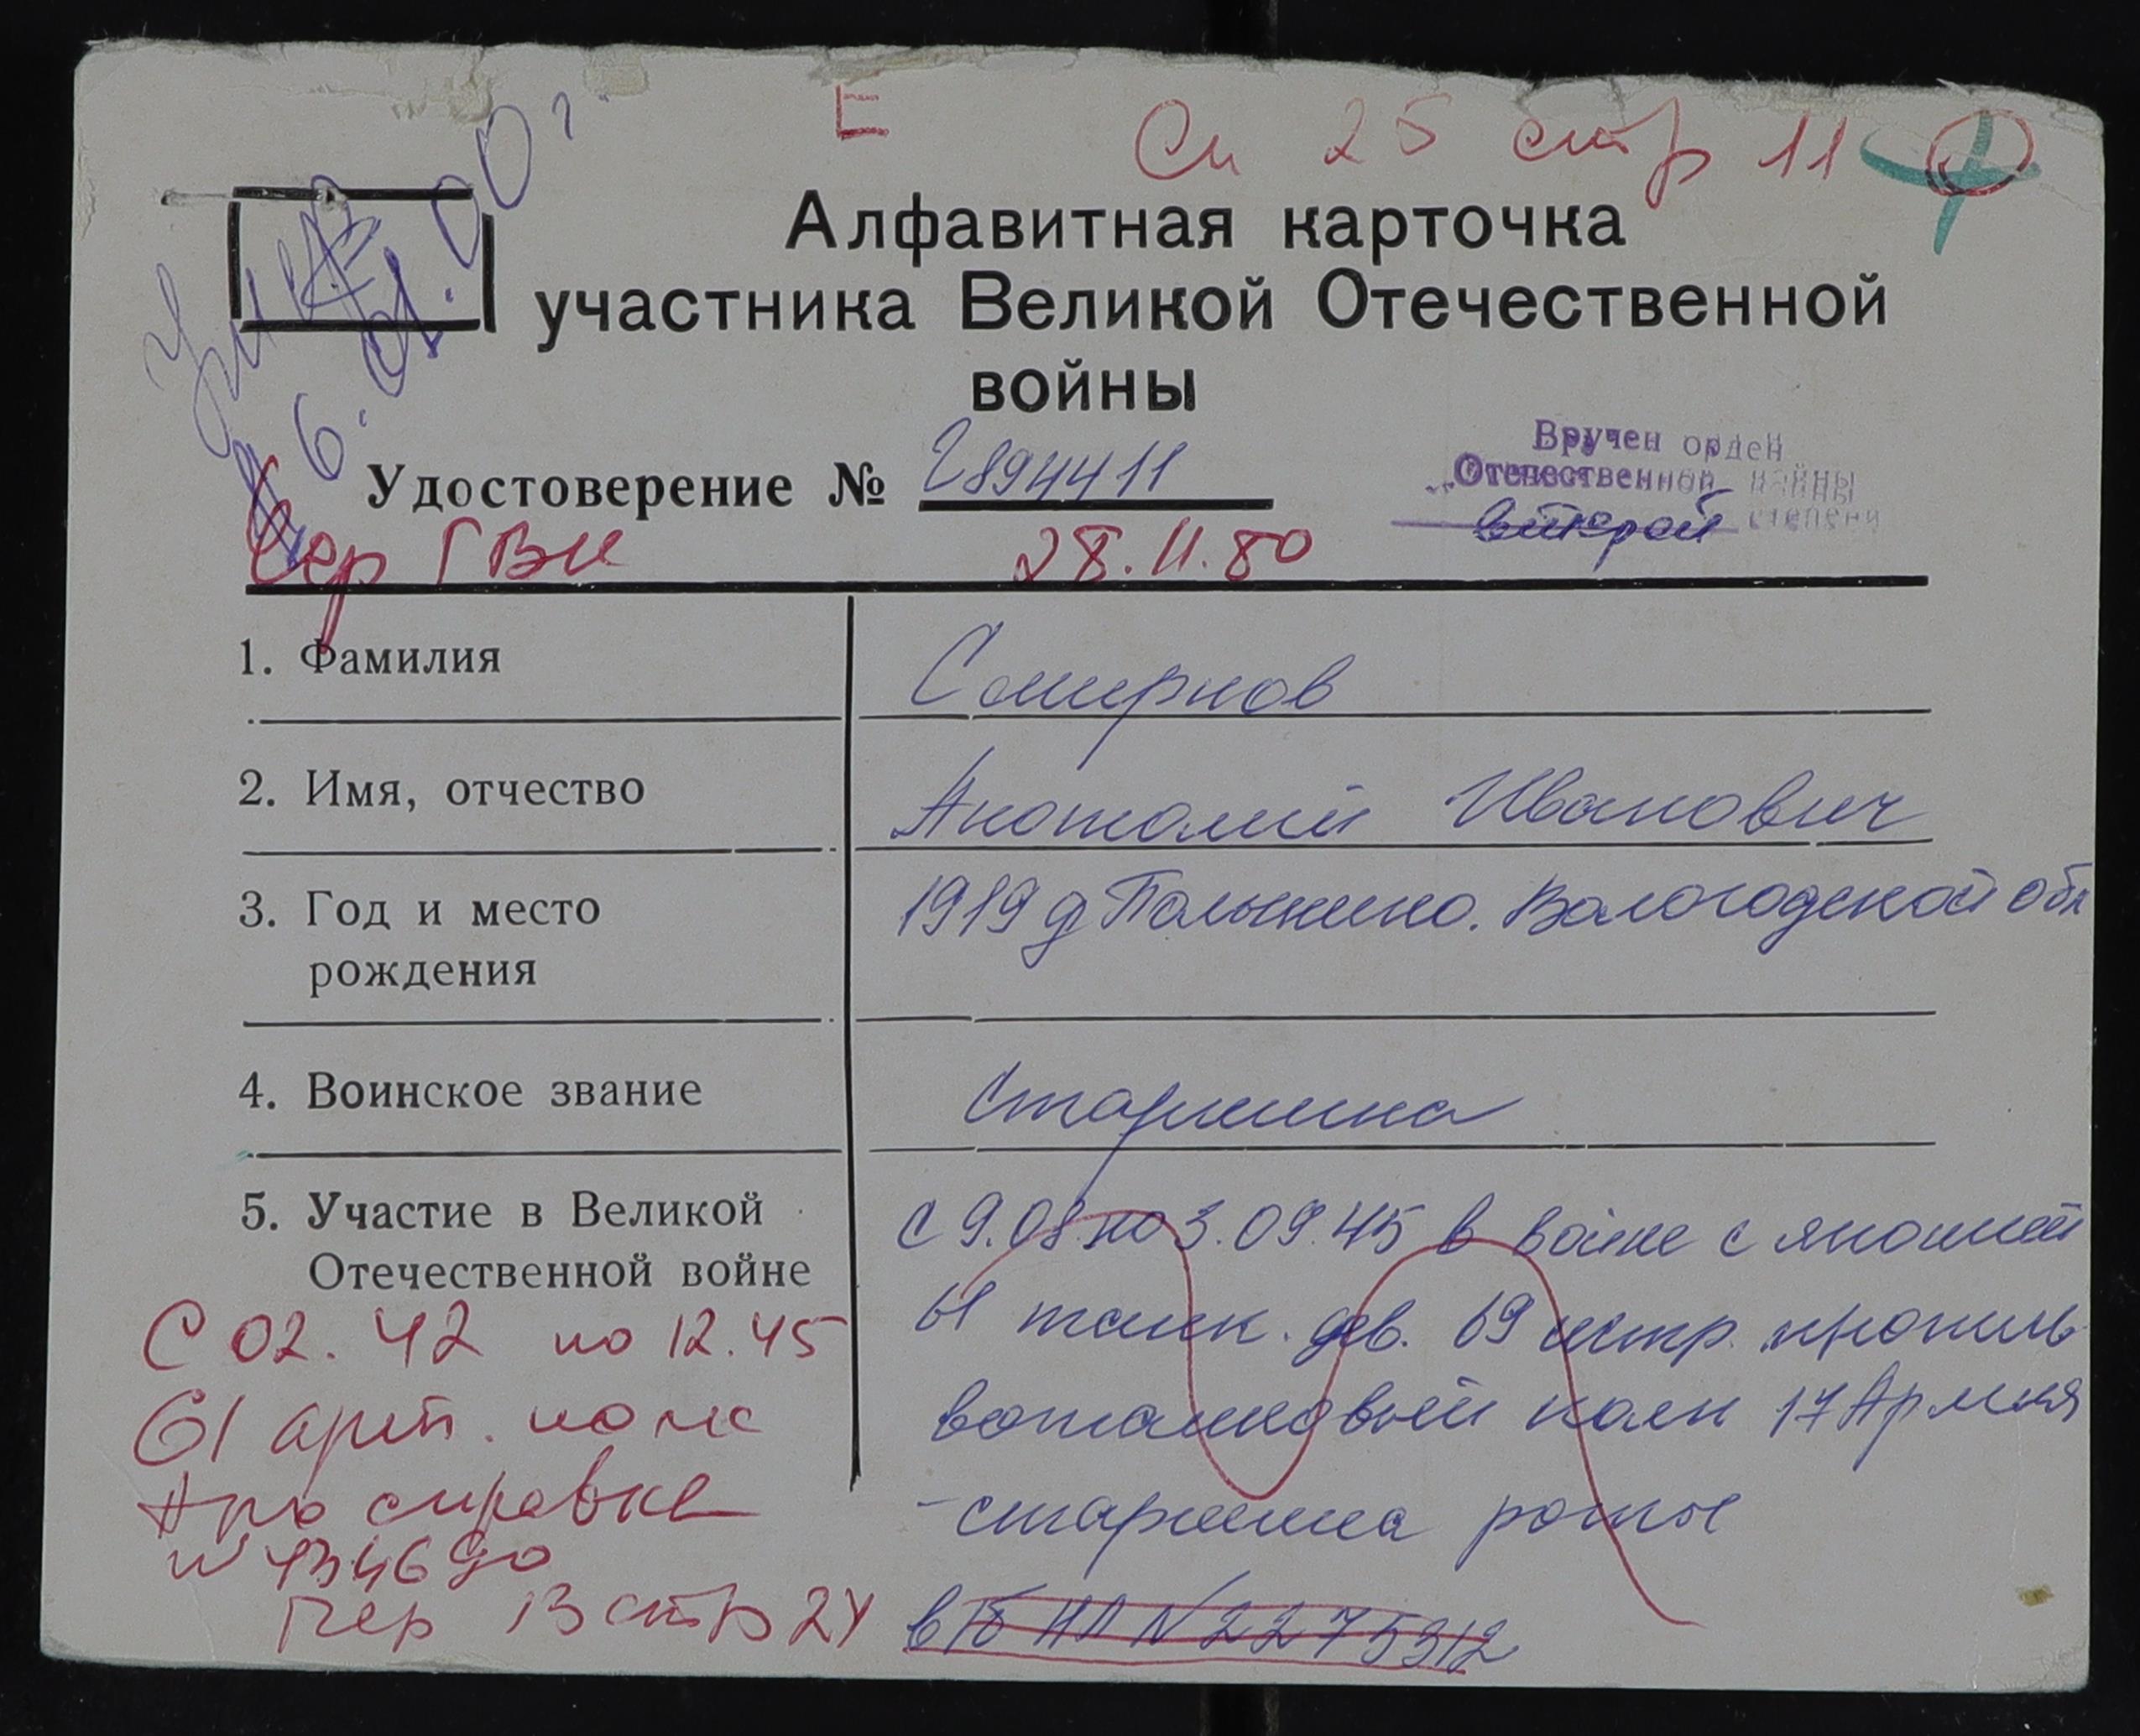 Е Сп 25 стр 11
Алфавитная карточка
участника Великой Отечественной
войны
Умер
6.01.00 г.
Вручен орден
„Отечественной войны
второй степени
Удостоверение № 2894411
Сер ГВИ 28.11.80
1. Фамилия Смирнов
2. Имя, отчество Анатолий Иванович
3. Год и место
рождения
1919 д Полынино. Вологодской обл
4. Воинское звание Старшина
5. Участие в Великой
Отечественной войне
с 9.08 по 3.09.45 в войне с японией
61 танк. див. 69 истр. против
вотанковый полк 17 Армия
-старшина роты
в/б НЛ N 2275312
С 02.42 по 12.45
61 арт. полк
справка
N 434690
Пер 13 стр 24